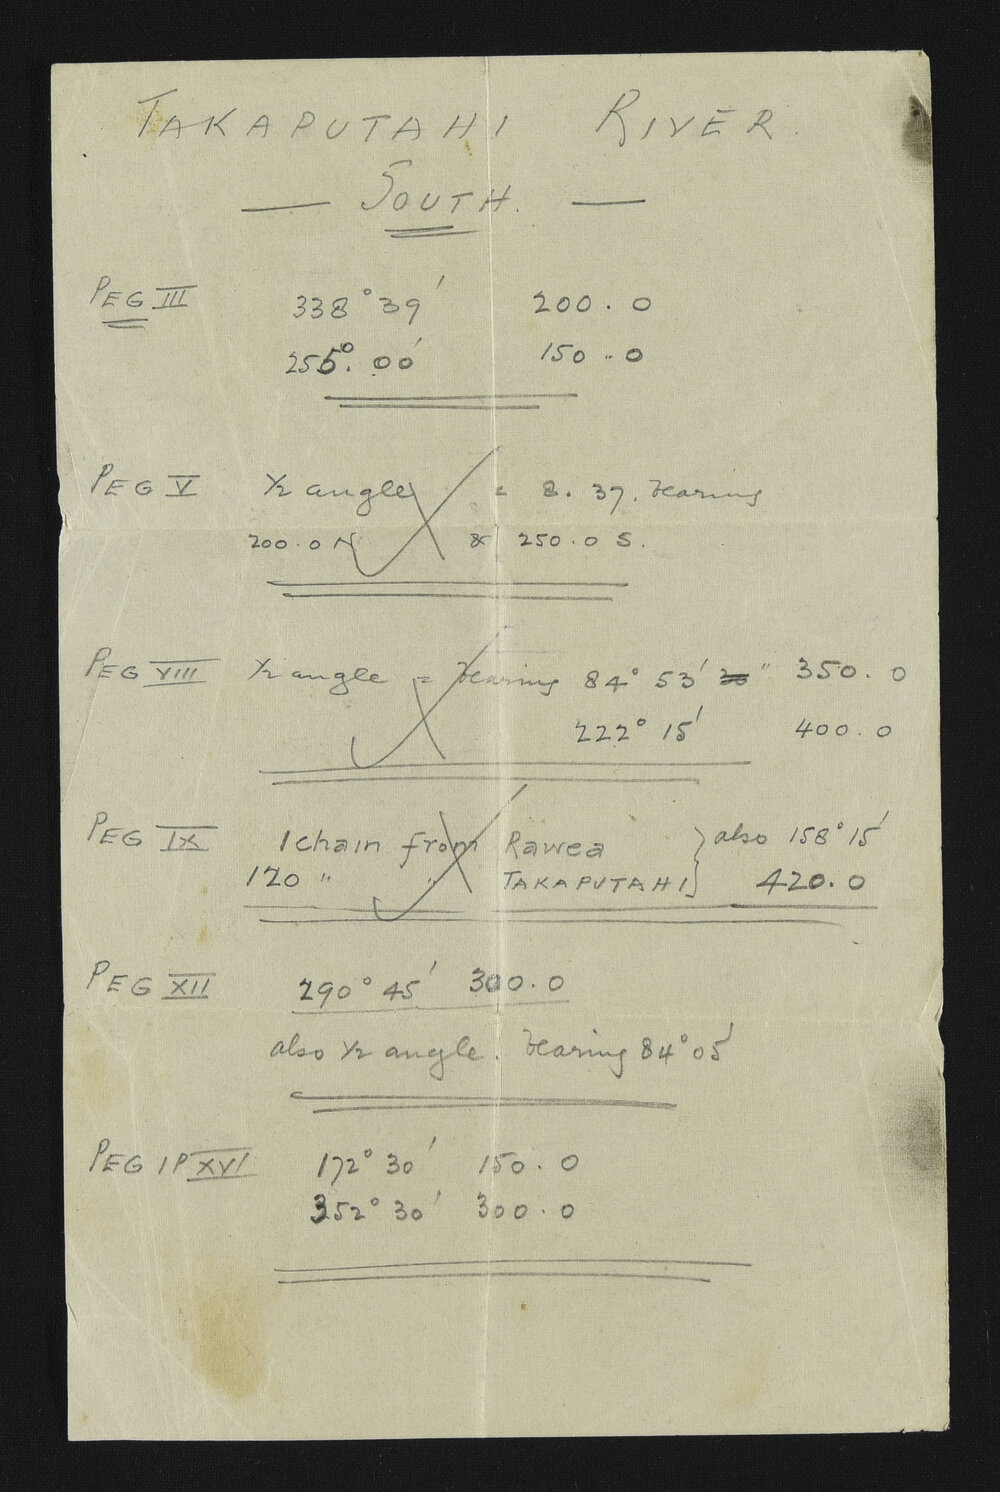 TAKAPUTAHI RIVER
— SOUTH. —
PEG III 338° 39' 200.0
255°. 00' 150..0
PEG V ½ angle = 8. 37. bearing
200.0 N & 250.0 S.
PEG VIII ½ angle = bearing 84° 53' 30" 350.0
222° 15' 400.0
PEG IX 1 chain from Rawea } also 158° 15'
120 " " TAKAPUTAHI } 420.0
PEG XII 290° 45' 300.0
also ½ angle. bearing 84° 05'
PEG IP XVI 172° 30' 150.0
352° 30' 300.0